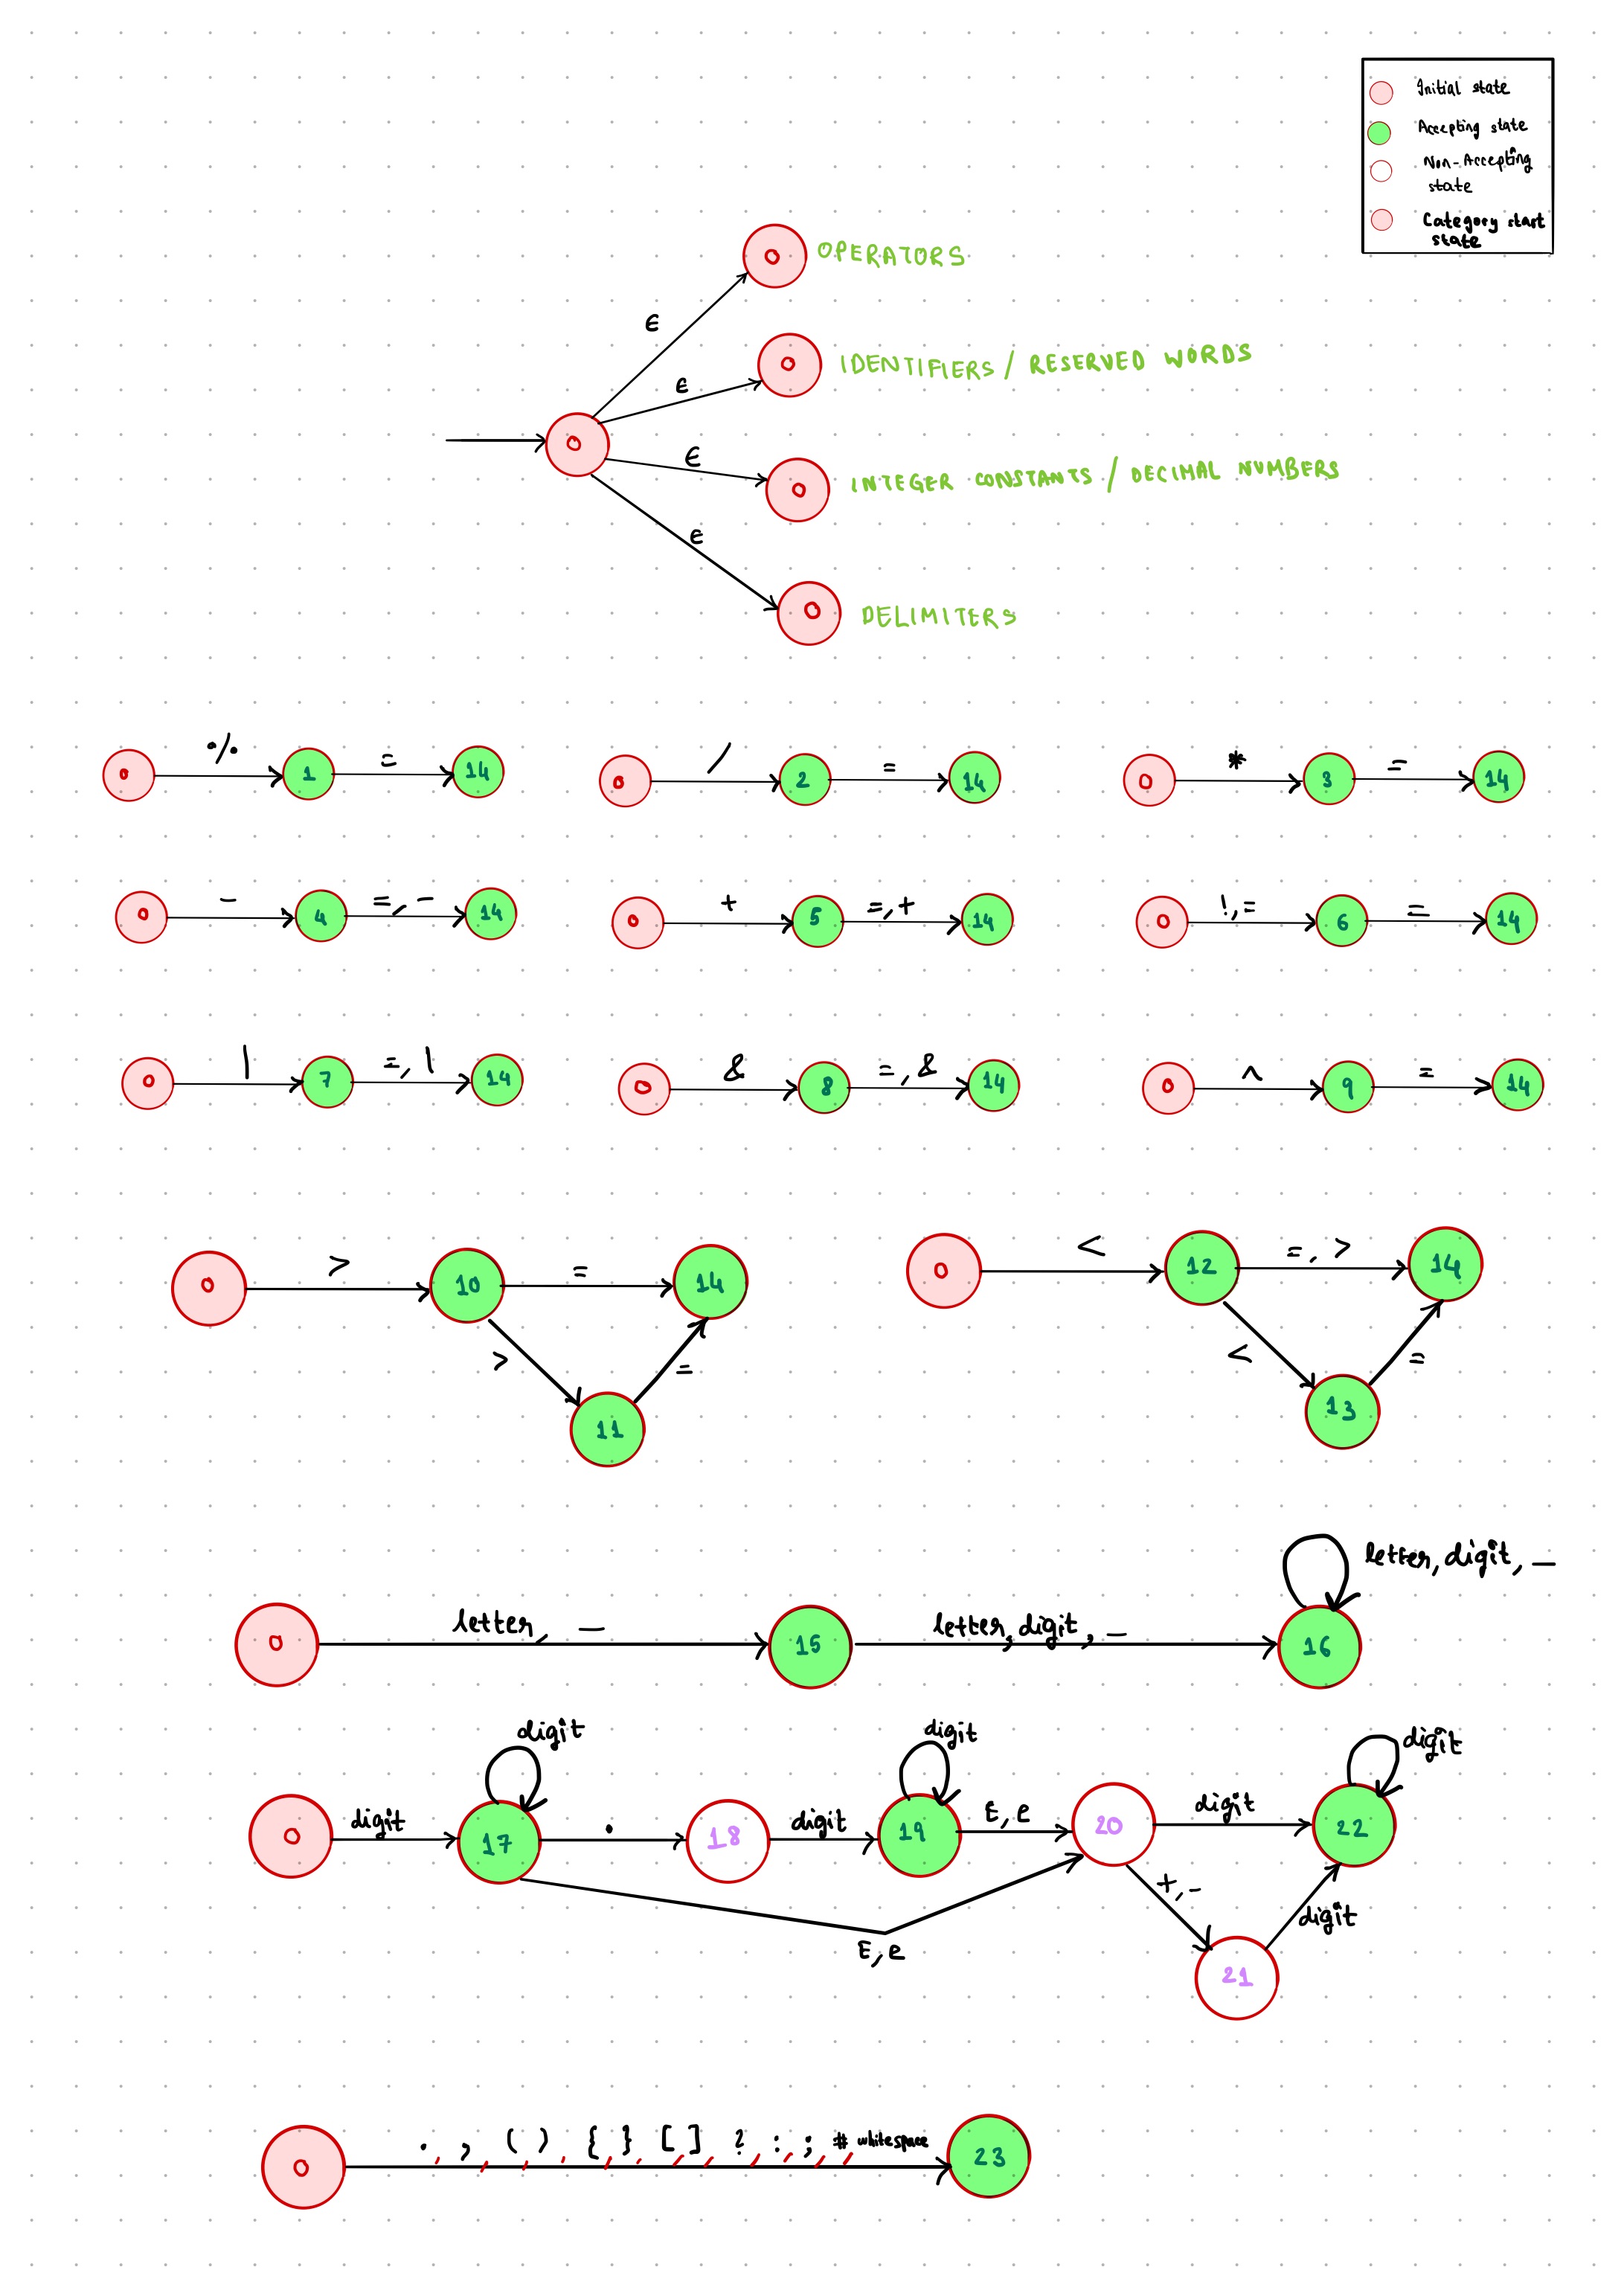 Initial state
Accepting state
Non-Accepting
state
Category start
state
0 OPERATORS
ϵ
0 IDENTIFIERS / RESERVED WORDS
ϵ
0
ϵ
0 INTEGER CONSTANTS / DECIMAL NUMBERS
ϵ
0 DELIMITERS
0 % 1 = 14
0 / 2 = 14
0 * 3 = 14
0 - 4 =, - 14
0 + 5 =, + 14
0 !, = 6 = 14
0 | 7 =, | 14
0 & 8 =, & 14
0 ^ 9 = 14
0 > 10 = 14
> =
11
0 < 12 =, > 14
< =
13
letter, digit, _
0 letter, _ 15 letter, digit, _ 16
digit digit digit
0 digit 17 . 18 digit 19 E, e 20 digit 22
+, -
digit
E, e
21
0 . , , , ( , ) , { , } , [ , ] , ? , : , ; , # , whitespace 23